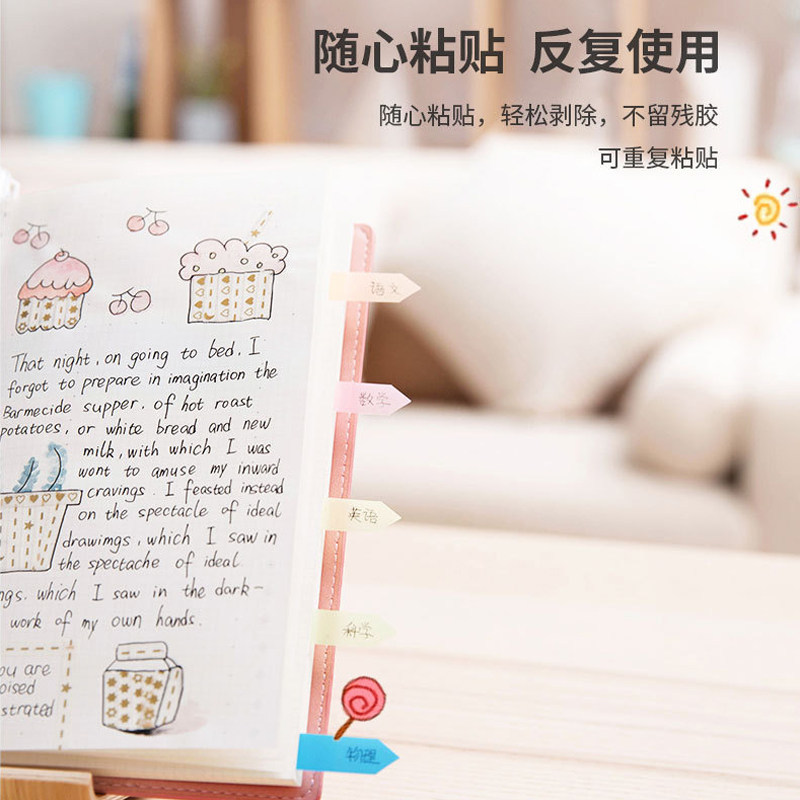 随心粘贴 反复使用
随心粘贴，轻松剥除，不留残胶
可重复粘贴
That night, on going to bed, I
forgot to prepare in imagination the
Barmecide supper, of hot roast
potatoes, or white bread and new
milk, with which I was
wont to amuse my inward
cravings. I feasted instead
on the spectacle of ideal
drawimgs, which I saw in
the spectache of ideal
ngs. which I saw in the dark-
work of my own hands.
ou are
oised
strated
语文
数学
英语
科学
物理